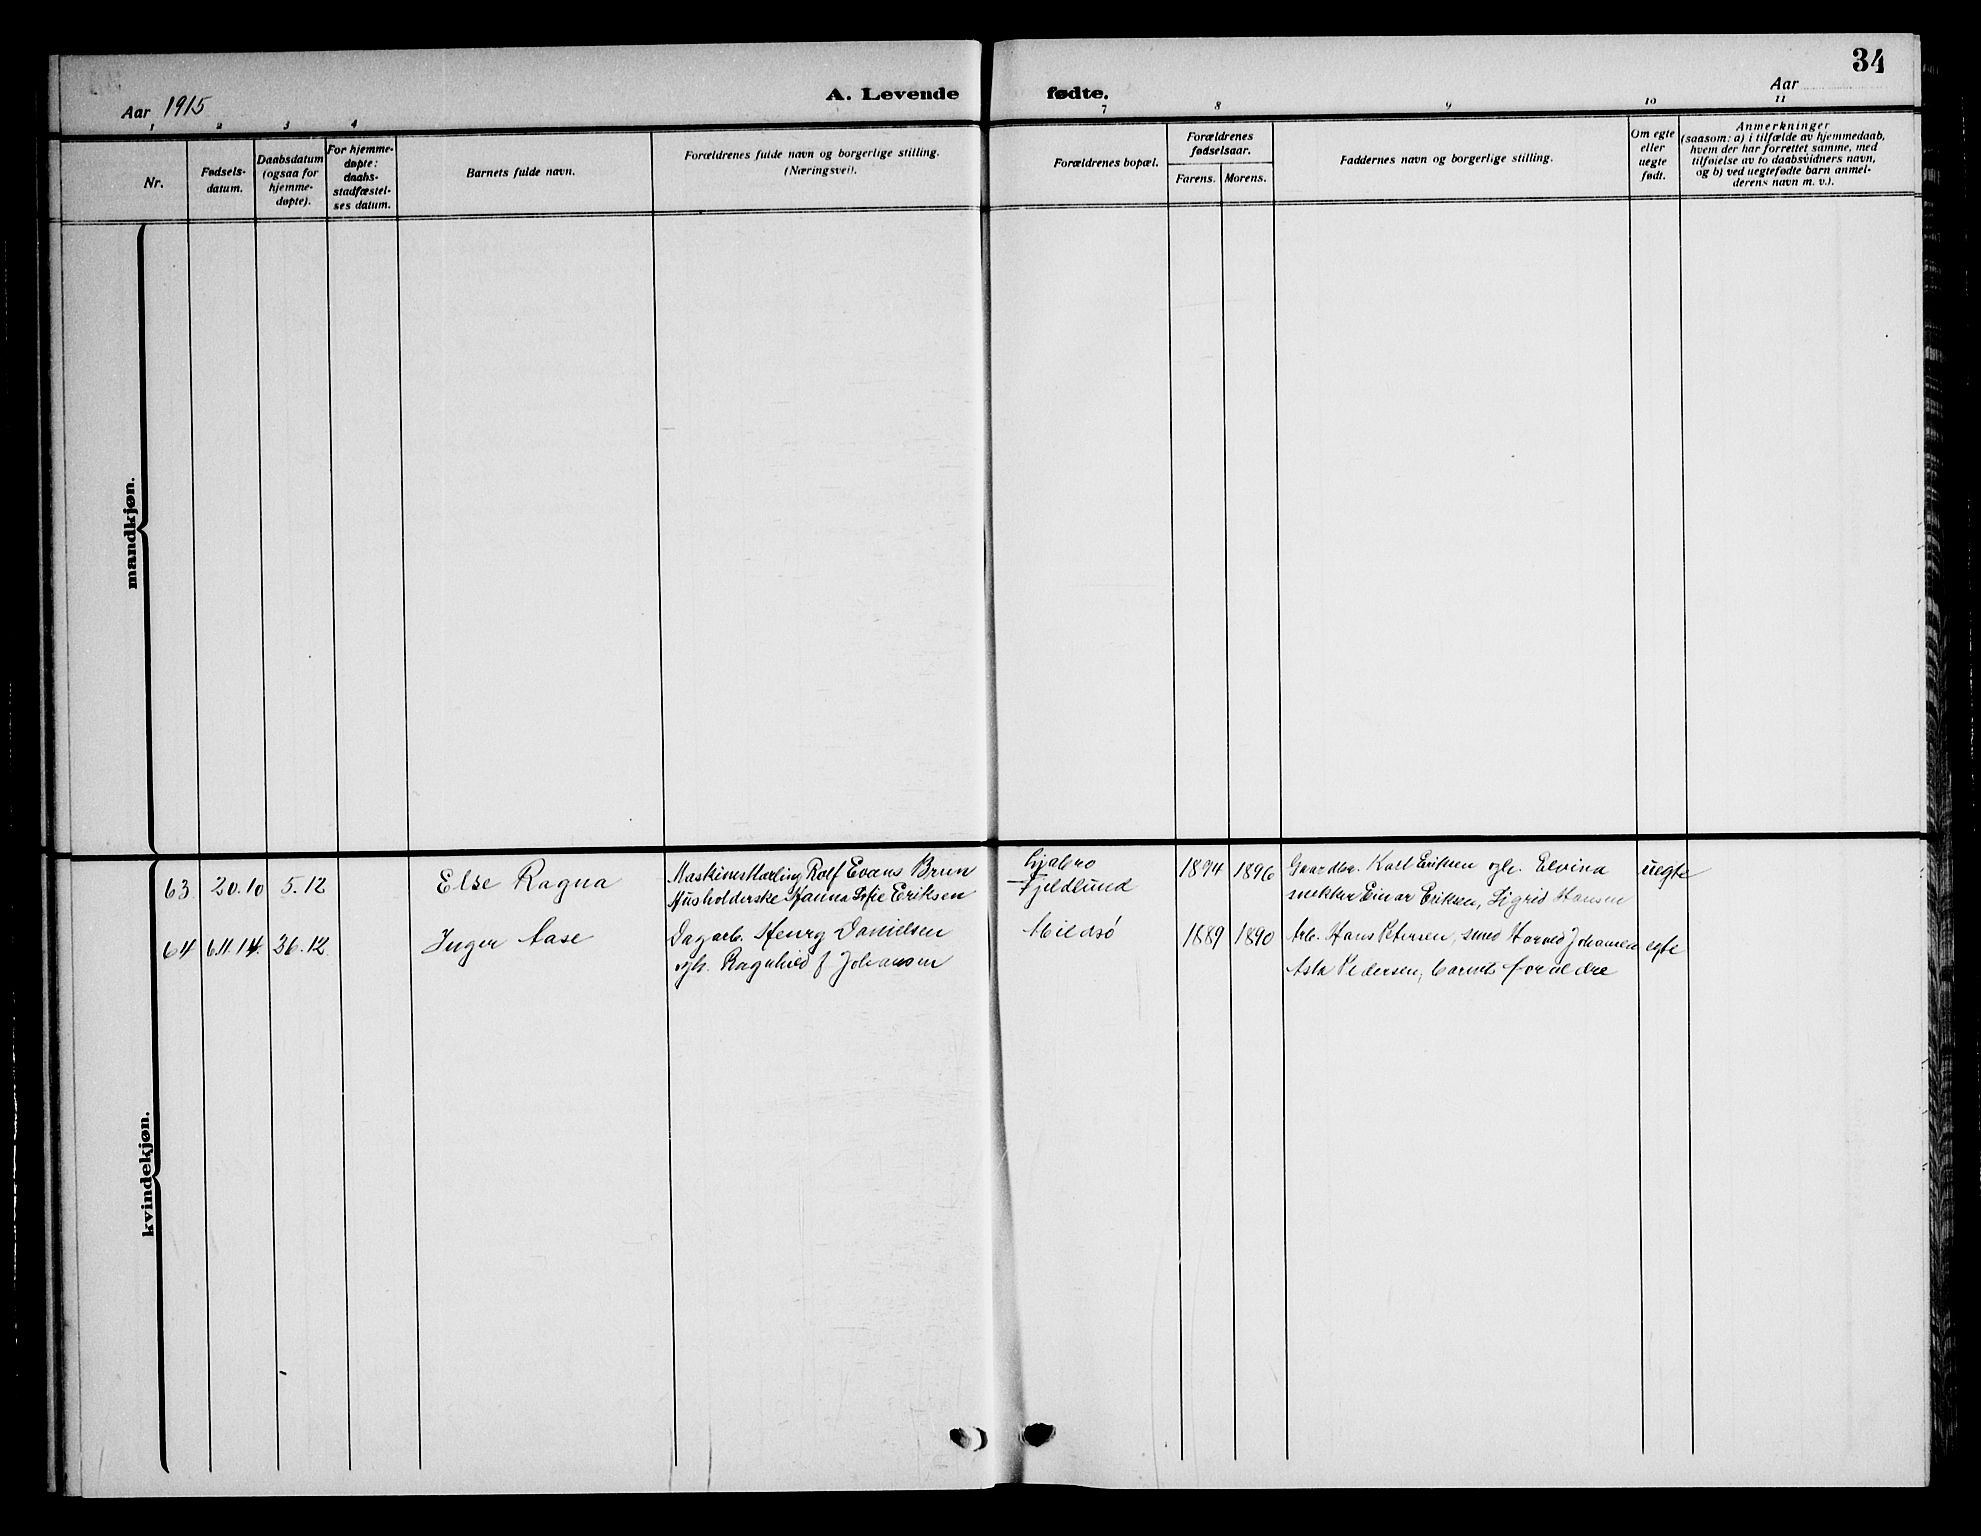 34
Aar 1915
A. Levende fødte.
Aar
1 2 3 4 7 8 9 10 11
Nr.
Fødsels-
datum.
Daabsdatum
(ogsaa for
hjemme-
døpte).
For hjemme-
døpte:
daabs-
stadfæstel-
ses datum.
Barnets fulde navn.
Forældrenes fulde navn og borgerlige stilling.
(Næringsvei).
Forældrenes bopæl.
Forældrenes
fødselsaar.
Farens. Morens.
Faddernes navn og borgerlige stilling.
Om egte
eller
uegte
født.
Anmerkninger
(saasom: a) i tilfælde av hjemmedaab,
hvem der har forrettet samme, med
tilføielse av to daabsvidners navn,
og b) ved uegtefødte barn anmel-
derens navn m. v.).
mandkjøn.
kvindekjøn.
63 20.10 5.12 Else Ragna Maskinestarling Rolf Evans Brun 1894 1896 Gaardbr. Karl Eriksen og h. Elvina uegte
Husholderske Hanna Sofie Eriksen Fjeldlund snekker Einar Eriksen, Sigrid Hansen
64 6.11.14. 26.12. Inger Aase Dagarb. Henry Danielsen 1889 1890 Arb. Hans Petersen, smed Harald Johansen egte
og h. Ragnhild f Johansen Asta Pedersen, barnets forældre